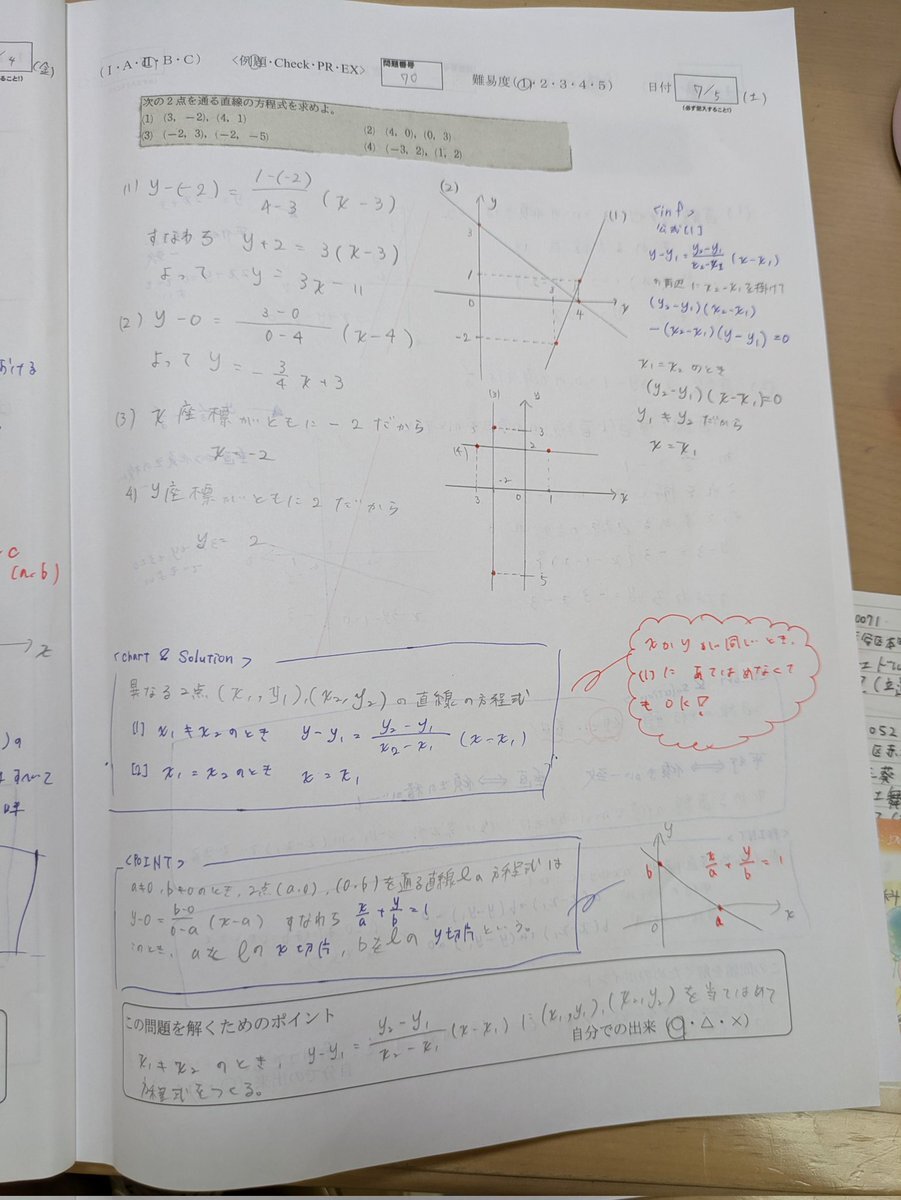 (I・A・II・B・C) <例題・Check・PR・EX> 問題番号 70 難易度(①・2・3・4・5) 日付 7/5 (土)
(必ず記入すること!)
次の2点を通る直線の方程式を求めよ。
(1) (3, −2), (4, 1)
(2) (4, 0), (0, 3)
(3) (−2, 3), (−2, −5)
(4) (−3, 2), (1, 2)
(1) y-(-2) = 1-(-2)/4-3 (x-3)
すなわち y+2 = 3(x-3)
よって y = 3x-11
(2) y-0 = 3-0/0-4 (x-4)
よって y = -3/4 x+3
(3) x座標がともに-2だから
x=-2
4) y座標がともに2だから
y= 2
(2)
y
(1)
3
1
3
0
4
x
-2
(3)
y
3
(4)
2
-2
3
0
1
x
5
inf>
公式[1]
y-y₁ = y₂-y₁/x₂-x₁ (x-x₁)
の両辺にx₂-x₁を掛けて
(y₂-y₁)(x₂-x₁)
-(x₂-x₁)(y-y₁)=0
x₁=x₂ のとき
(y₂-y₁)(x-x₁)=0
y₁≠y₂ だから
x=x₁
<chart & Solution>
異なる2点(x₁,y₁),(x₂,y₂)の直線の方程式
[1] x₁≠x₂のとき y-y₁ = y₂-y₁/x₂-x₁ (x-x₁)
[2] x₁=x₂のとき x=x₁
xかyが同じとき、
(1)にあてはめなくて
もOK!
<POINT>
a≠0, b≠0のとき, 2点(a,0), (0,b)を通る直線ℓの方程式は
y-0= b-0/0-a (x-a) すなわち x/a + y/b =1
このとき, aをℓのx切片, bをℓのy切片という。
y
b
x/a + y/b = 1
0
a
x
この問題を解くためのポイント
x₁≠x₂ のとき, y-y₁ = y₂-y₁/x₂-x₁ (x-x₁)に(x₁,y₁),(x₂,y₂)を当てはめて
方程式をつくる。
自分での出来 (○・△・×)